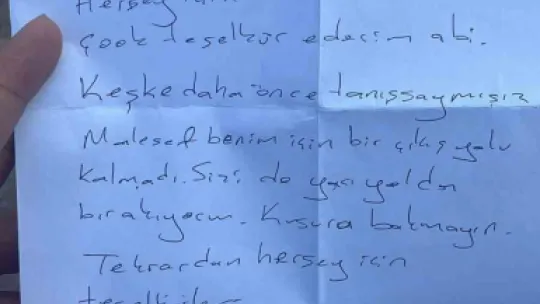 Herşey için
Çook teşekkür ederim abi.
Keşke daha önce tanışsaymışız
Malesef benim için bir çıkış yolu
kalmadı. Sizi de yarı yolda
bırakıyorum. Kusura bakmayın.
Tekrardan herşey için